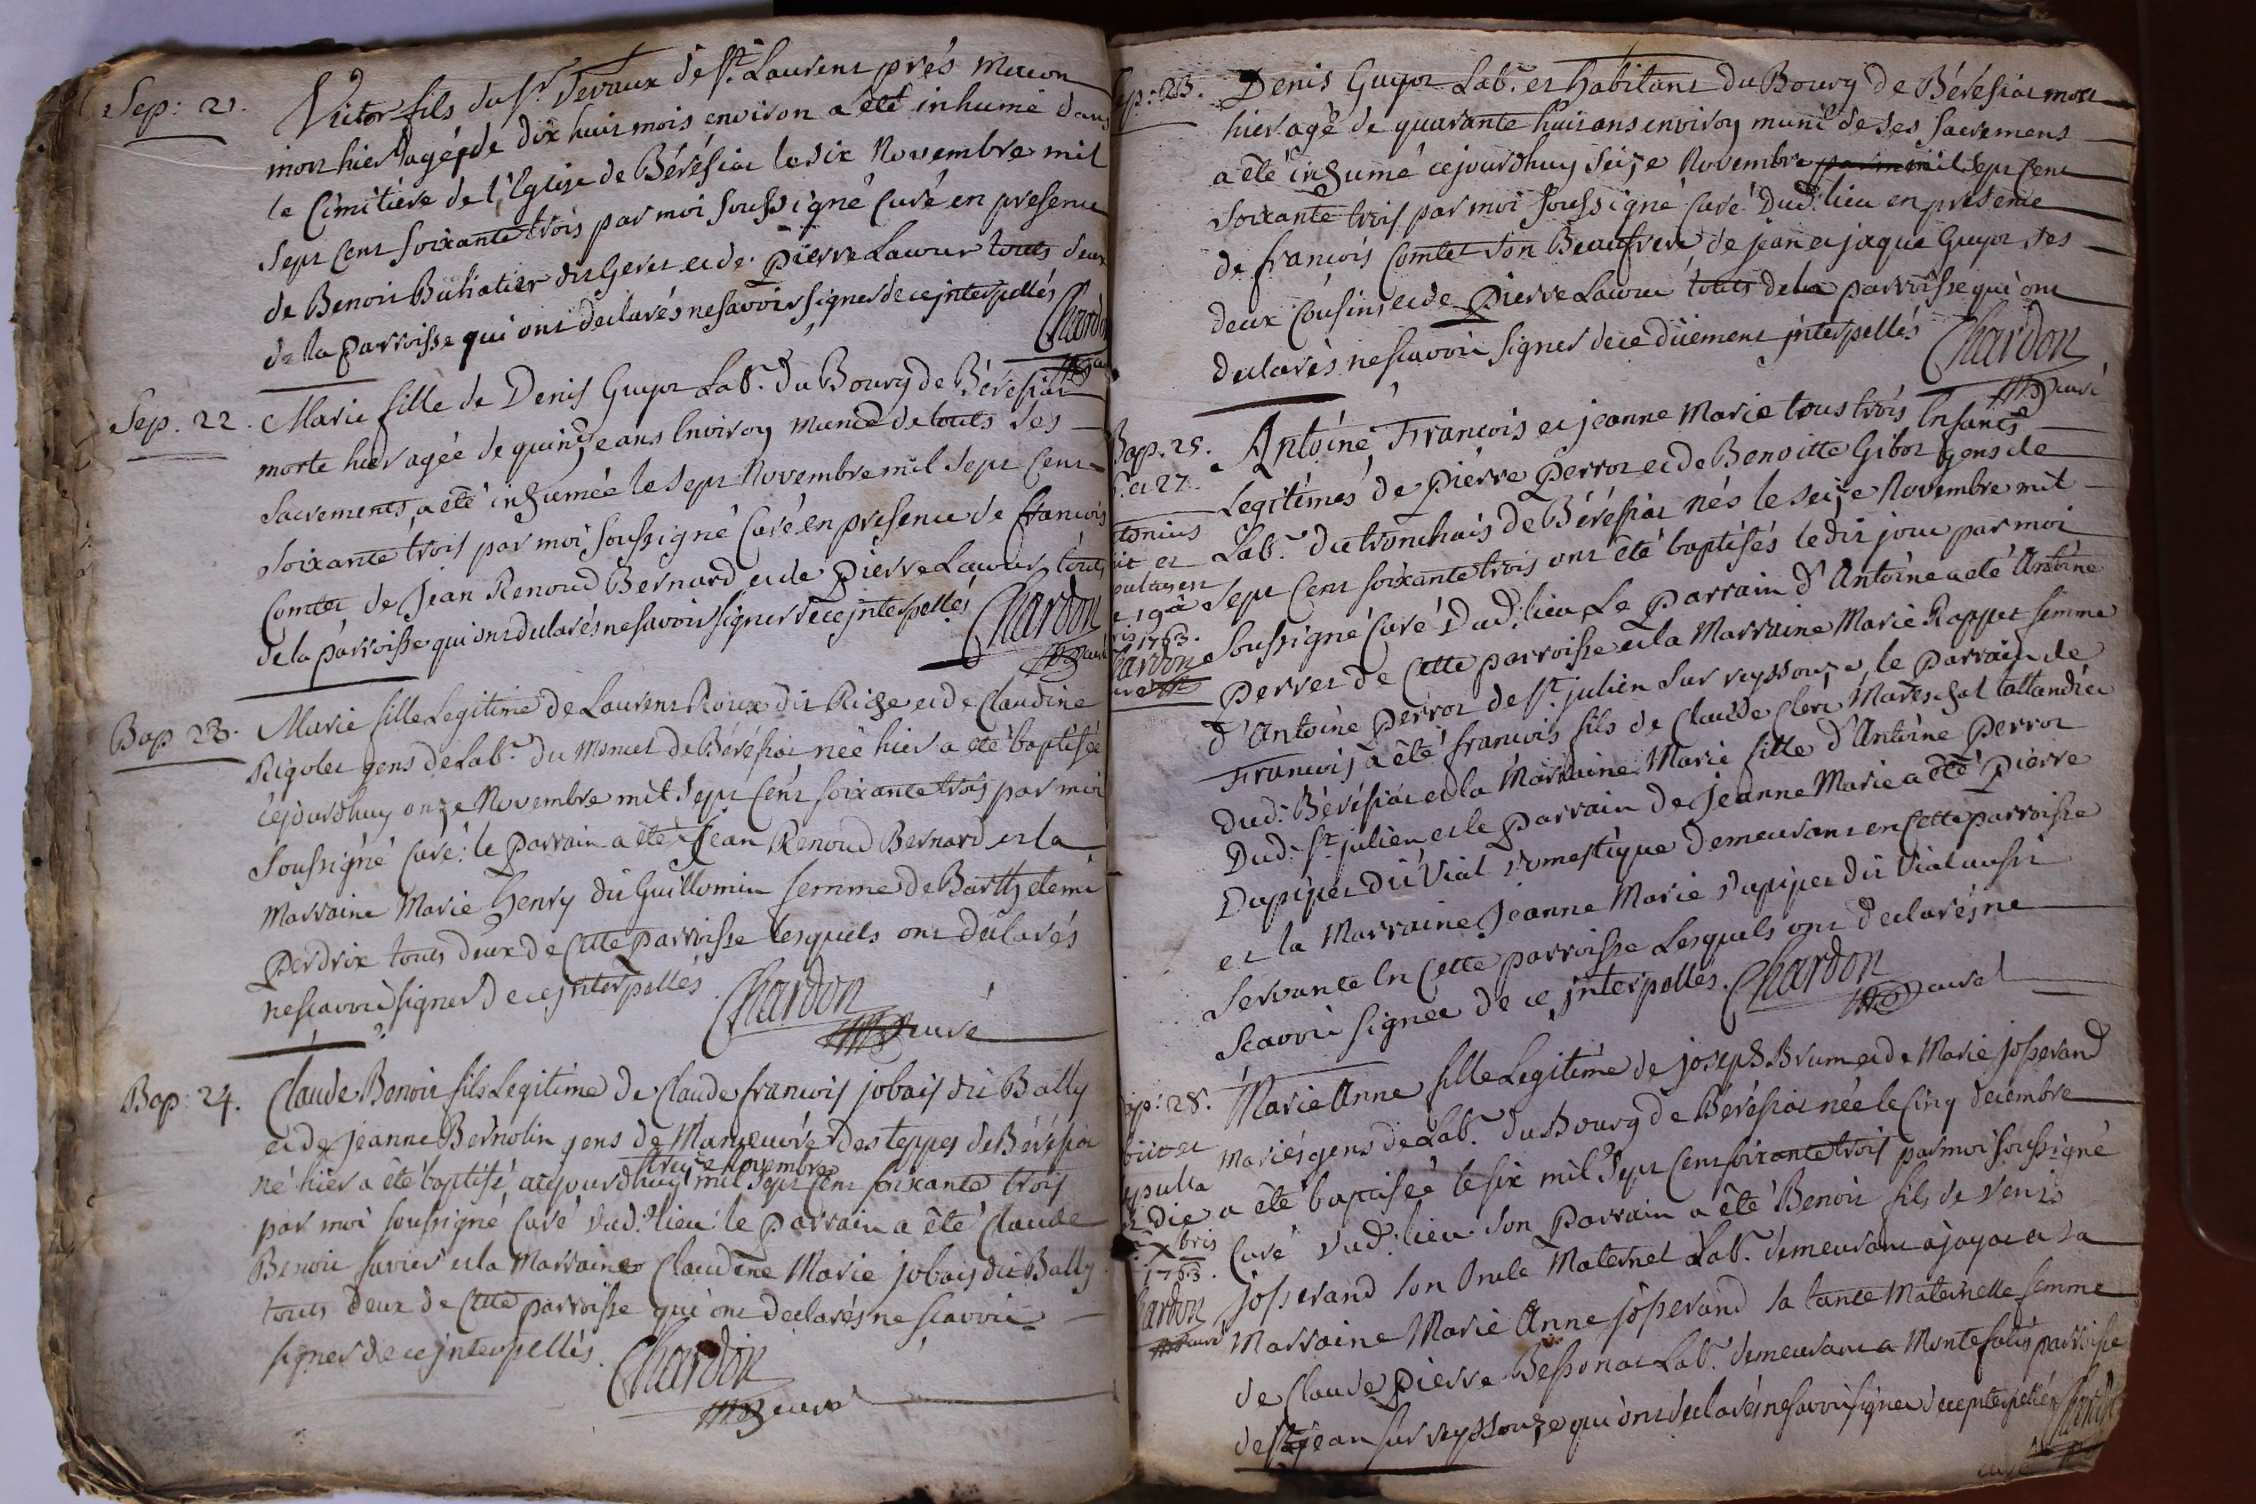 Sep: 21.
Victor fils du Sr. Devaux de St. Laurent prés Macon
mort hier agé de dix huit mois environ a été inhumé dans
le Cimitiére de l'Eglise de Bérésiat le six Novembre mil
sept Cent soixante trois par moi soussigné Curé en presence
de Benoit Buhatier dit Geret et de Pierre Lacour touts deux
de la parroisse qui ont declarés ne savoir signer de ce jnterpellés
Chardon
Sep. 22.
Marie fille de Denis Guyot Labr. du Bourg de Bérésiat
morte hier agée de quinze ans Environ Munie de touts ses
Sacrements, a été inhumée le sept Novembre mil sept Cent
soixante trois par moi soussigné Curé en presence de francois
Comtet de Jean Renoud Bernard et de Pierre Lacour touts
de la parroisse qui ont declarés ne savoir signer de ce jnterpellés
Chardon
curé
Bap 23.
Marie fille Legitime de Laurent Roux dit Riche et de Claudine
Rigolet gens de Labr. du Moncet de Bérésiat née hier a été baptisée
cejourdhuy onze Novembre mil sept Cent soixante trois par moi
soussigné Curé: le Parrain a été Jean Renoud Bernard et la
Marraine Marie henry dit Guillomin femme de Barthelemi
Perdrix touts deux de Cette parroisse lesquels ont déclarés
ne scavoir signer de ce jnterpellés
Chardon
curé
Bap: 24.
Claude Benoit fils Legitime de Claude francois jobais dit Bally
et de Jeanne Bernolin gens de Manoeuvre des teppes de Bérésiat
treize Novembre
né hier a été baptisé aujourdhuy mil sept Cent soixante trois
par moi soussigné Curé dud. lieu: le Parrain a été Claude
Benoit favier et la Marraine Claudine Marie jobais dit Bally
touts deux de Cette parroisse qui ont declarés ne scavoir
signer de ce jnterpellés.
Chardon
curé
Sep: 23.
Denis Guyot Labr. et habitant du Bourg de Bérésiat mort
hier agé de quarante huit ans environ muni de ses sacrements
a été inhumé cejourdhuy seize Novembre mil sept Cent
soixante trois par moi soussigné Curé Dud. lieu en présence
de francois Comtet son Beaufrere de jean et jaque Guyot ses
deux Cousins et de Pierre Lacour touts de la parroisse qui ont
declarés ne scavoir signer de ce düement jnterpellés
Chardon
curé
Bap. 25.
et 27.
Antoine, Francois et jeanne Marie tous trois Enfants
Legitimes de Pierre Perrot et de Benoitte Gibot gens de
Labr. du tronchais de Bérésiat nés le seize Novembre mil
sept Cent soixante trois ont été baptisés le dit jour par moi
soussigné Curé Dud. lieu Le Parrain d'Antoine a été Antoine
Perret de Cette parroisse et la Marraine Marie Rapput femme
d'Antoine Perrot de St. julien sur reyssouze, le Parrain de
Francois a été francois fils de Claude Clerc Mareschal tallandier
Dud. Bérésiat et la Marraine Marie fille d'Antoine Perrot
Dud. St. julien et le Parrain de Jeanne Marie a été Pierre
Dupipet dit Vial domestique demeurant en Cette parroisse
et la Marraine Jeanne Marie Dupipet dit Vial aussi
servante En Cette parroisse Lesquels ont declarés ne
scavoir signer de ce jnterpellés.
Chardon
curé
et
19a
1763.
Chardon
curé
Bap: 28.
Marie Anne fille Legitime de joseph Brum et de Marie josserand
Mariés gens de Labr. du Bourg de Bérésiat née le Cinq decembre
a été baptisée le six mil sept Cent soixante trois par moi soussigné
Curé Dud. lieu son Parrain a été Benoit fils de Denis
josserand son Oncle Maternel Labr. demeurant a jayat et sa
Marraine Marie Anne josserand sa tante Maternelle femme
de Claude Pierre Bessonat Labr. demeurant a Montefalin parroisse
de St. jean sur reyssouze qui ont declarés ne savoir signer de ce jnterpellés
Chardon
curé
die
Xbris
1763.
Chardon
curé